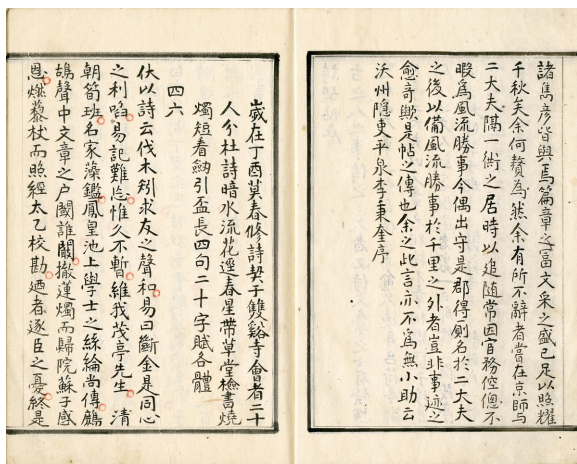 諸雋彦皆與焉篇章之富文采之盛已足以照耀
千秋矣余何贅為然余有所不辭者嘗在京師与
二大夫隔一衖之居時以追随常因官務倥傯不
暇為風流勝事今偶出守是郡得側名於二大夫
之後以備風流勝事於千里之外者豈非事迹之
愈奇歟是帖之傳也余之此言亦不為無小助云
沃州隱吏平泉李秉奎序
歲在丁酉莫春修詩契于雙谿寺會者二十
人分杜詩暗水流花逕春星帶草堂檢書燒
燭短看釰引盃長四句二十字賦各體
四六
伏以詩云伐木矧求友之聲和易曰斷金是同心
之利啗易記難忘惟久不暫維我茂亭先生 清
朝筍班名家藻鑑鳳皇池上學士之絲綸尚傳鷓
鴣聲中文章之户闥誰闢撤蓮燭而歸院蘇子感
恩燃藜杖而照經太乙校勘廼者逐臣之憂終是